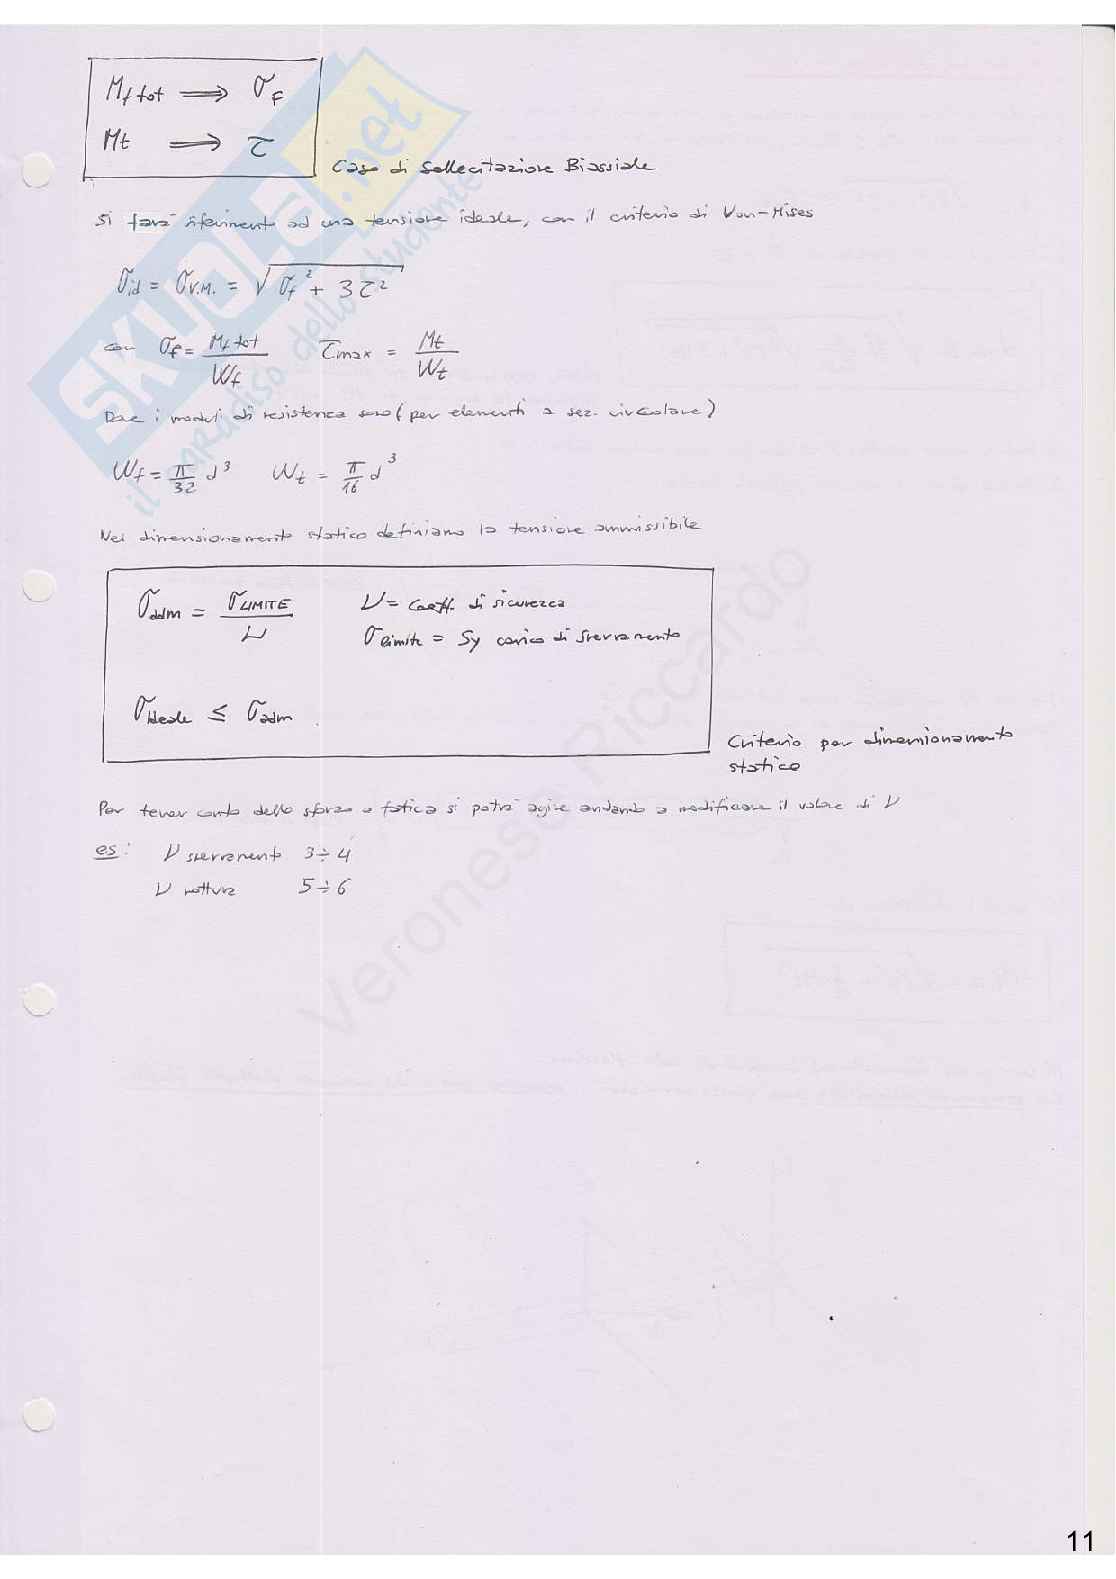 Mf tot ⟹ σf
Mt ⟹ τ
Caso di Sollecitazione Biassiale
Si farà riferimento ad una tensione ideale, con il criterio di Von-Mises
σid = σV.M. = √(σf² + 3τ²)
con σf = Mf tot / Wf τmax = Mt / Wt
Dove i moduli di resistenza sono (per elementi a sez. circolare)
Wf = π/32 d³ Wt = π/16 d³
Nel dimensionamento statico definiamo la tensione ammissibile
σadm = σLIMITE / ν ν = coeff. di sicurezza
σlimite = Sy carico di snervamento
σideale ≤ σadm
Criterio per dimensionamento
statico
Per tener conto dello sforzo a fatica si potrà agire andando a modificare il valore di ν
es: ν snervamento 3÷4
ν rottura 5÷6
SKUOLA.net
il paradiso dello studente
Veronese Riccardo
11